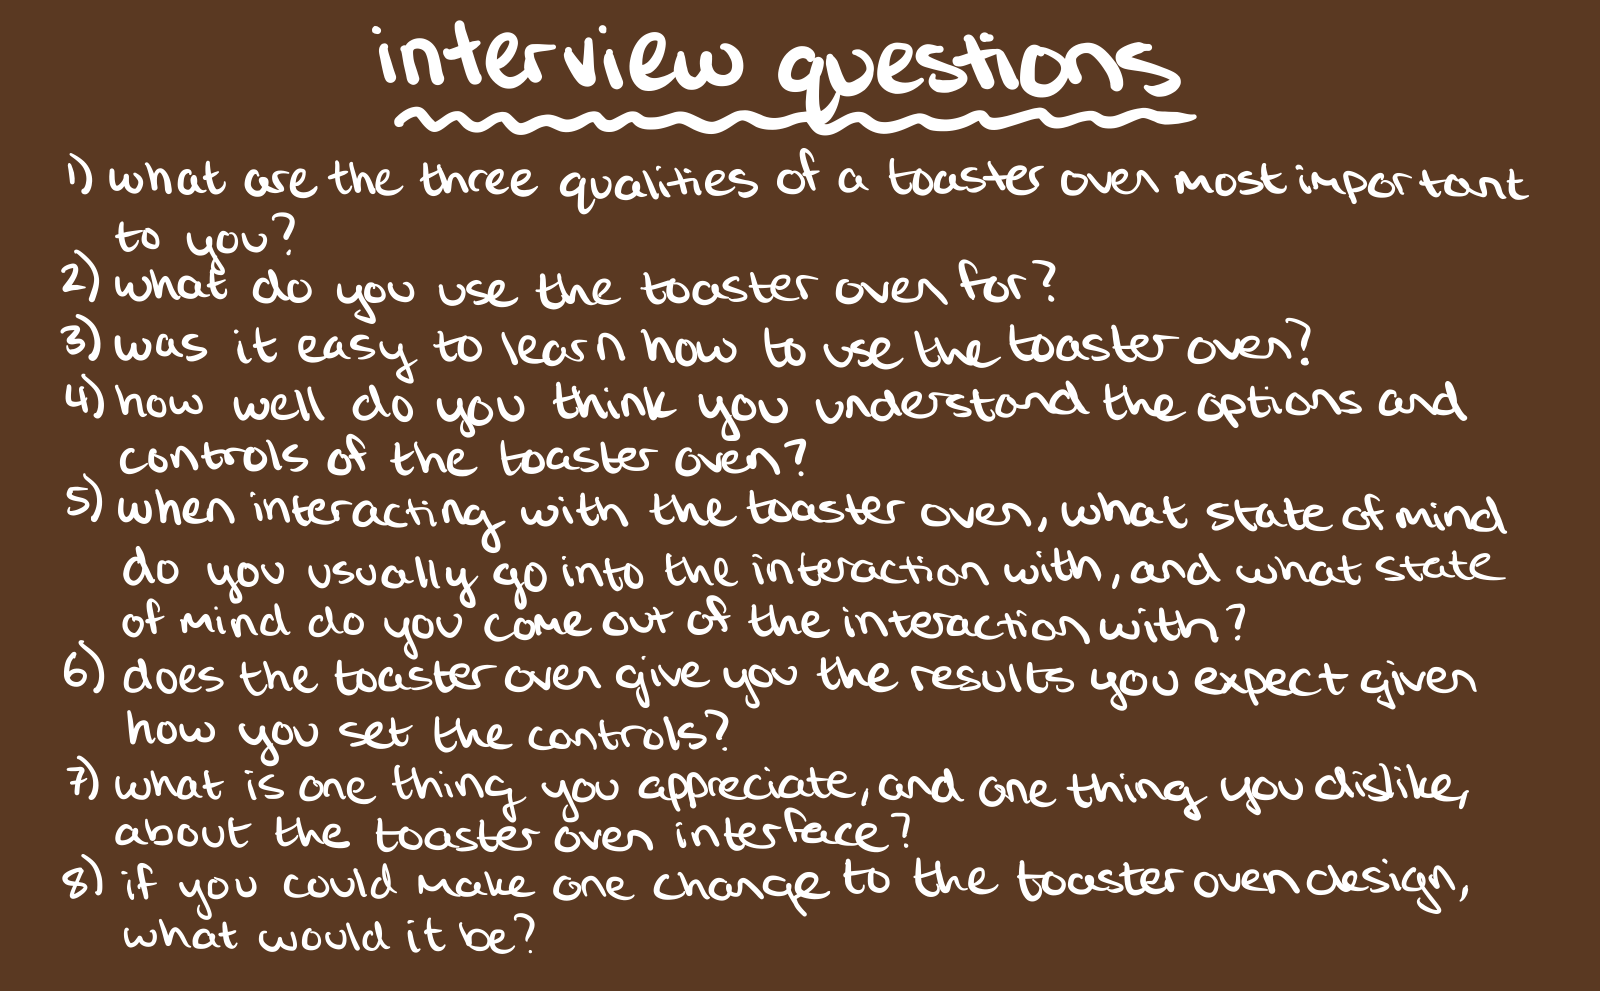 interview questions
1) what are the three qualities of a toaster oven most important
to you?
2) what do you use the toaster oven for?
3) was it easy to learn how to use the toaster oven?
4) how well do you think you understand the options and
controls of the toaster oven?
5) when interacting with the toaster oven, what state of mind
do you usually go into the interaction with, and what state
of mind do you come out of the interaction with?
6) does the toaster oven give you the results you expect given
how you set the controls?
7) what is one thing you appreciate, and one thing you dislike,
about the toaster oven interface?
8) if you could make one change to the toaster oven design,
what would it be?